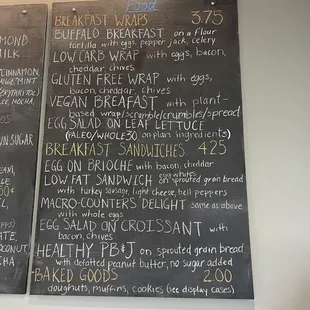 Food
BREAKFAST WRAPS 3.75
BUFFALO BREAKFAST on a Flour
tortilla with eggs, pepper jack, celery
LOW CARB WRAP with eggs, bacon,
cheddar, chives
GLUTEN FREE WRAP with eggs,
bacon, cheddar, chives
VEGAN BREAFAST with plant-
based wrap/scramble/crumbles/spread
EGG SALAD ON LEAF LETTUCE
(PALEO/WHOLE30, on plan ingredients)
BREAKFAST SANDWICHES 4.25
EGG ON BRIOCHE with bacon, cheddar
egg whites
LOW FAT SANDWICH on sprouted grain bread
with turkey sausage, light cheese, bell peppers
MACRO-COUNTER'S DELIGHT same as above
with whole eggs
EGG SALAD ON CROISSANT with
bacon, chives
HEALTHY PB&J on sprouted grain bread
with defatted peanut butter, no sugar added
BAKED GOODS 2.00
doughnuts, muffins, cookies (see display cases)
MOND
MILK
CINNAMON,
RE, MOCHA
WN SUGAR
ATE,
OCONUT,
CHA